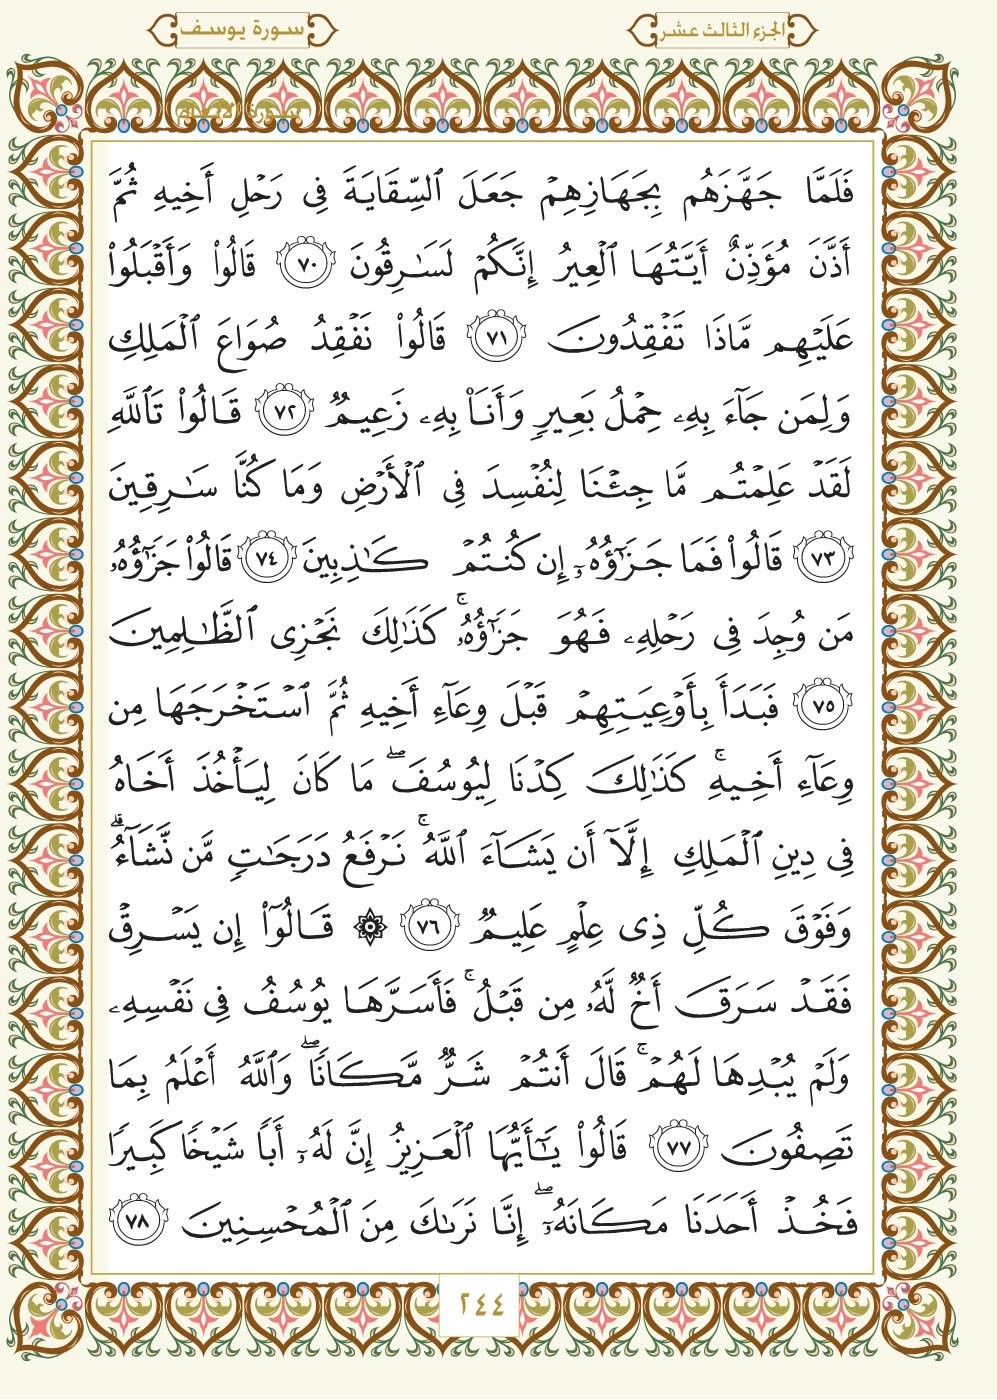 الجزء الثالث عشر
سورة يوسف
فَلَمَّا جَهَّزَهُم بِجَهَازِهِمۡ جَعَلَ ٱلسِّقَايَةَ فِي رَحۡلِ أَخِيهِ ثُمَّ
أَذَّنَ مُؤَذِّنٌ أَيَّتُهَا ٱلۡعِيرُ إِنَّكُمۡ لَسَٰرِقُونَ ٧٠ قَالُواْ وَأَقۡبَلُواْ
عَلَيۡهِم مَّاذَا تَفۡقِدُونَ ٧١ قَالُواْ نَفۡقِدُ صُوَاعَ ٱلۡمَلِكِ
وَلِمَن جَآءَ بِهِۦ حِمۡلُ بَعِيرٖ وَأَنَا۠ بِهِۦ زَعِيمٞ ٧٢ قَالُواْ تَٱللَّهِ
لَقَدۡ عَلِمۡتُم مَّا جِئۡنَا لِنُفۡسِدَ فِي ٱلۡأَرۡضِ وَمَا كُنَّا سَٰرِقِينَ
٧٣ قَالُواْ فَمَا جَزَٰٓؤُهُۥٓ إِن كُنتُمۡ كَٰذِبِينَ ٧٤ قَالُواْ جَزَٰٓؤُهُۥ
مَن وُجِدَ فِي رَحۡلِهِۦ فَهُوَ جَزَٰٓؤُهُۥۚ كَذَٰلِكَ نَجۡزِي ٱلظَّٰلِمِينَ
٧٥ فَبَدَأَ بِأَوۡعِيَتِهِمۡ قَبۡلَ وِعَآءِ أَخِيهِ ثُمَّ ٱسۡتَخۡرَجَهَا مِن
وِعَآءِ أَخِيهِۚ كَذَٰلِكَ كِدۡنَا لِيُوسُفَۖ مَا كَانَ لِيَأۡخُذَ أَخَاهُ
فِي دِينِ ٱلۡمَلِكِ إِلَّآ أَن يَشَآءَ ٱللَّهُۚ نَرۡفَعُ دَرَجَٰتٖ مَّن نَّشَآءُۗ
وَفَوۡقَ كُلِّ ذِي عِلۡمٍ عَلِيمٞ ٧٦ ۞ قَالُوٓاْ إِن يَسۡرِقۡ
فَقَدۡ سَرَقَ أَخٞ لَّهُۥ مِن قَبۡلُۚ فَأَسَرَّهَا يُوسُفُ فِي نَفۡسِهِۦ
وَلَمۡ يُبۡدِهَا لَهُمۡۚ قَالَ أَنتُمۡ شَرّٞ مَّكَانٗاۖ وَٱللَّهُ أَعۡلَمُ بِمَا
تَصِفُونَ ٧٧ قَالُواْ يَٰٓأَيُّهَا ٱلۡعَزِيزُ إِنَّ لَهُۥٓ أَبٗا شَيۡخٗا كَبِيرٗا
فَخُذۡ أَحَدَنَا مَكَانَهُۥٓۖ إِنَّا نَرَىٰكَ مِنَ ٱلۡمُحۡسِنِينَ ٧٨
٢٤٤